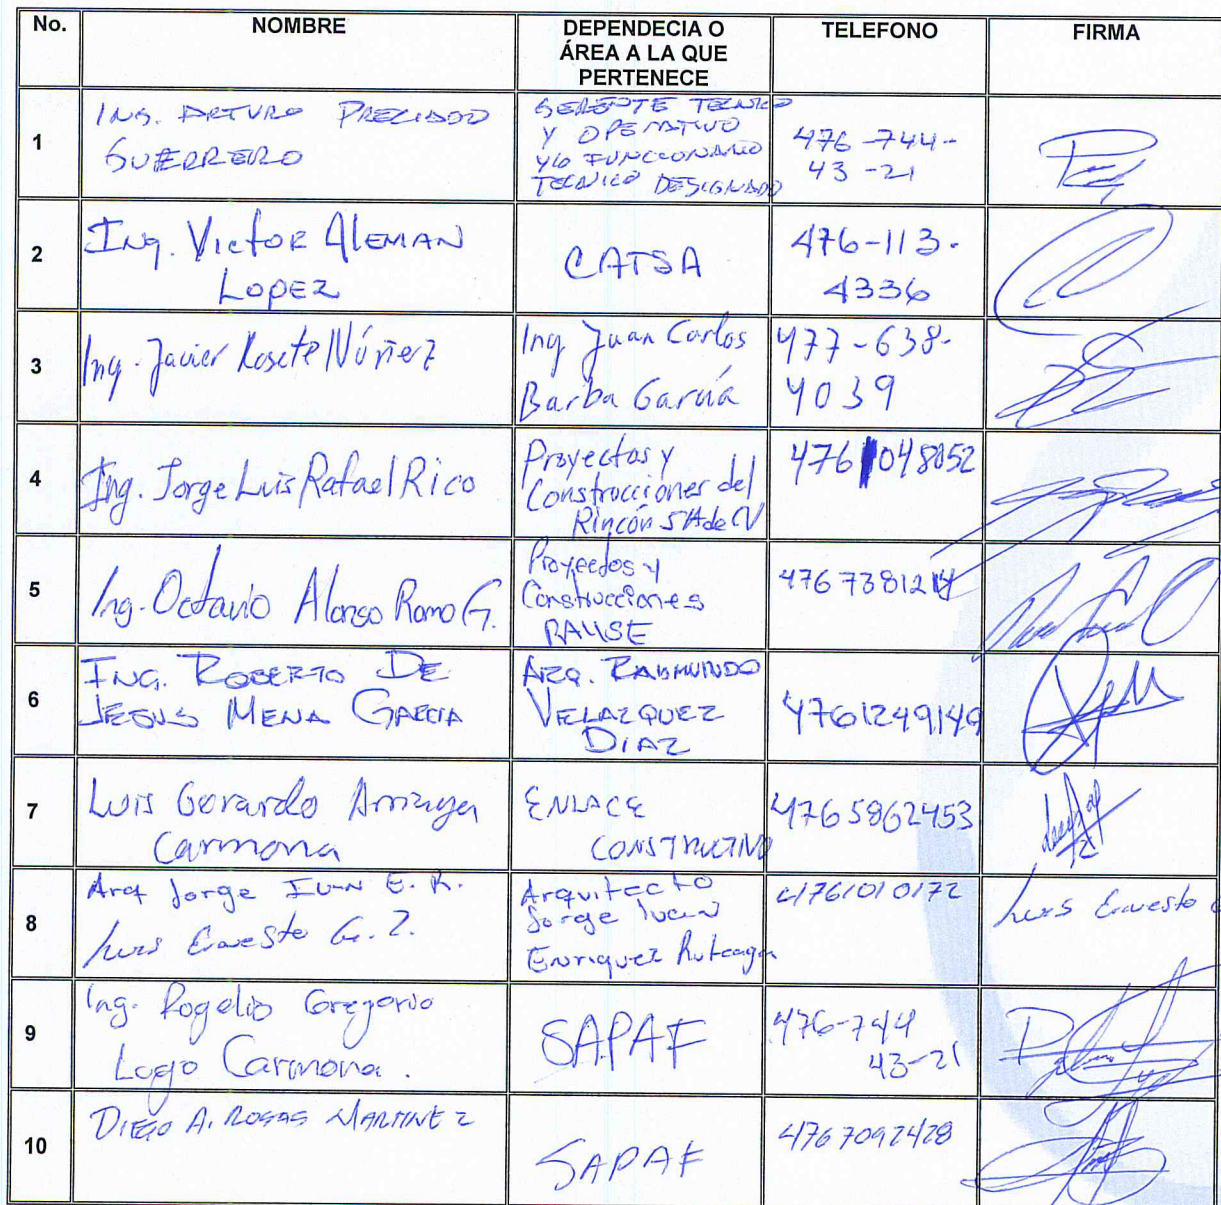 No. NOMBRE DEPENDECIA O TELEFONO FIRMA
ÁREA A LA QUE
PERTENECE
1
ING. ARTURO PRECIADO
GUERRERO
GERENTE TECNICO
Y OPERATIVO
Y/O FUNCCIONARIO
TECNICO DESIGNADO
476-744-
43-21
2
Ing. Victor Aleman
Lopez
CATSA
476-113-
4336
3
Ing. Javier Rosete Núñez
Ing Juan Carlos
Barba García
477-638-
4039
4
Ing. Jorge Luis Rafael Rico
Proyectos y
Construcciones del
Rincón SA de CV
476 1048052
5
Ing. Octavio Alonso Ramo G.
Proyectos y
Construcciones
RAUSE
6
ING. ROBERTO DE
JESUS MENA GARCIA
ARQ. RAYMUNDO
VELAZQUEZ
DIAZ
4761249149
7
Luis Gerardo Amaya
Carmona
ENLACE
CONSTRUCTIVO
4765862453
8
Arq Jorge IVAN E. R.
Luis Ernesto G. Z.
Arquitecto
Jorge Ivan
Enriquez
4761010172
Luis Ernesto
9
Ing. Rogelio Gregorio
Lugo Carmona.
SAPAF
476-744
43-21
10
DIEGO A. ROSAS MARTINEZ
SAPAF
4767092428